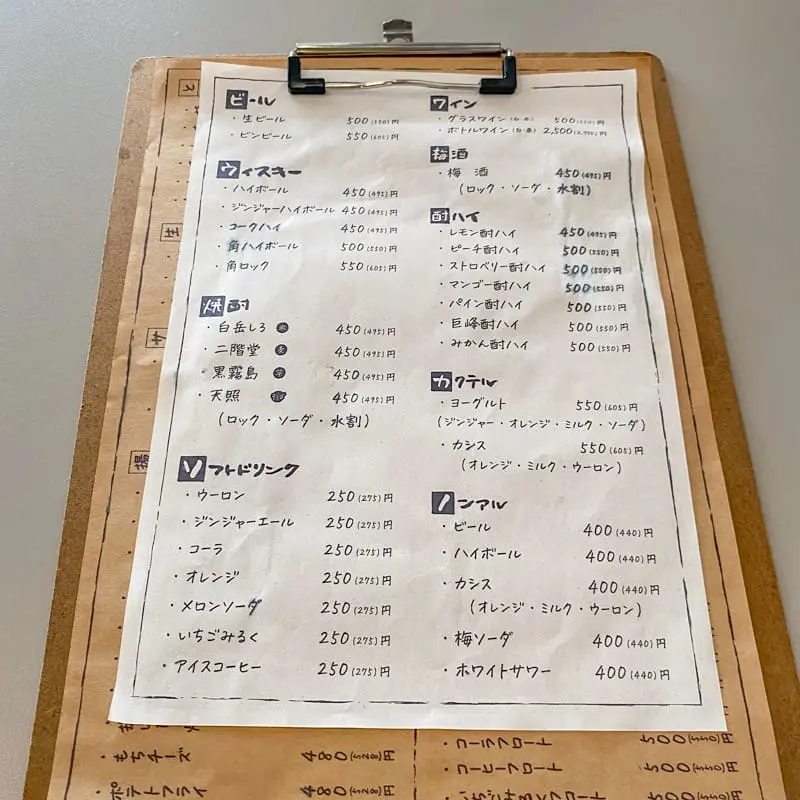 ビール
・生ビール 500(550)円
・ビンビール 550(605)円
ウィスキー
・ハイボール 450(495)円
・ジンジャーハイボール 450(495)円
・コークハイ 450(495)円
・角ハイボール 500(550)円
・角ロック 550(605)円
焼酎
・白岳しろ 米 450(495)円
・二階堂 麦 450(495)円
・黒霧島 芋 450(495)円
・天照 450(495)円
(ロック・ソーダ・水割)
ソフトドリンク
・ウーロン 250(275)円
・ジンジャーエール 250(275)円
・コーラ 250(275)円
・オレンジ 250(275)円
・メロンソーダ 250(275)円
・いちごみるく 250(275)円
・アイスコーヒー 250(275)円
ワイン
・グラスワイン(白・赤) 500(550)円
・ボトルワイン(白・赤) 2,500(2,750)円
梅酒
・梅酒 450(495)円
(ロック・ソーダ・水割)
酎ハイ
・レモン酎ハイ 450(495)円
・ピーチ酎ハイ 500(550)円
・ストロベリー酎ハイ 500(550)円
・マンゴー酎ハイ 500(550)円
・パイン酎ハイ 500(550)円
・巨峰酎ハイ 500(550)円
・みかん酎ハイ 500(550)円
カクテル
・ヨーグルト 550(605)円
(ジンジャー・オレンジ・ミルク・ソーダ)
・カシス 550(605)円
(オレンジ・ミルク・ウーロン)
ノンアル
・ビール 400(440)円
・ハイボール 400(440)円
・カシス 400(440)円
(オレンジ・ミルク・ウーロン)
・梅ソーダ 400(440)円
・ホワイトサワー 400(440)円
・もちチーズ 480(528)円
・ポテトフライ 480(528)円
・コーラフロート 500(550)円
・コーヒーフロート 500(550)円
・いちごみるくフロート 500(550)円